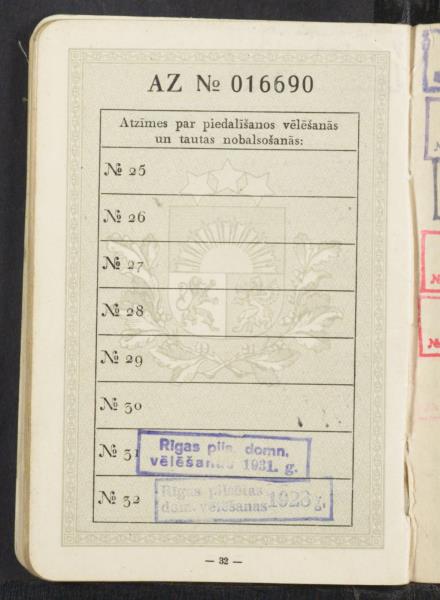 AZ № 016690
Atzīmes par piedalīšanos vēlēšanās
un tautas nobalsošanās:
№ 25
№ 26
№ 27
№ 28
№ 29
№ 30
№ 31
Rīgas pils. domn.
vēlēšanas 1931. g.
№ 32
Rīgas pilsētas
dom. vēlēšanas 1928 g.
— 32 —
№
№
№